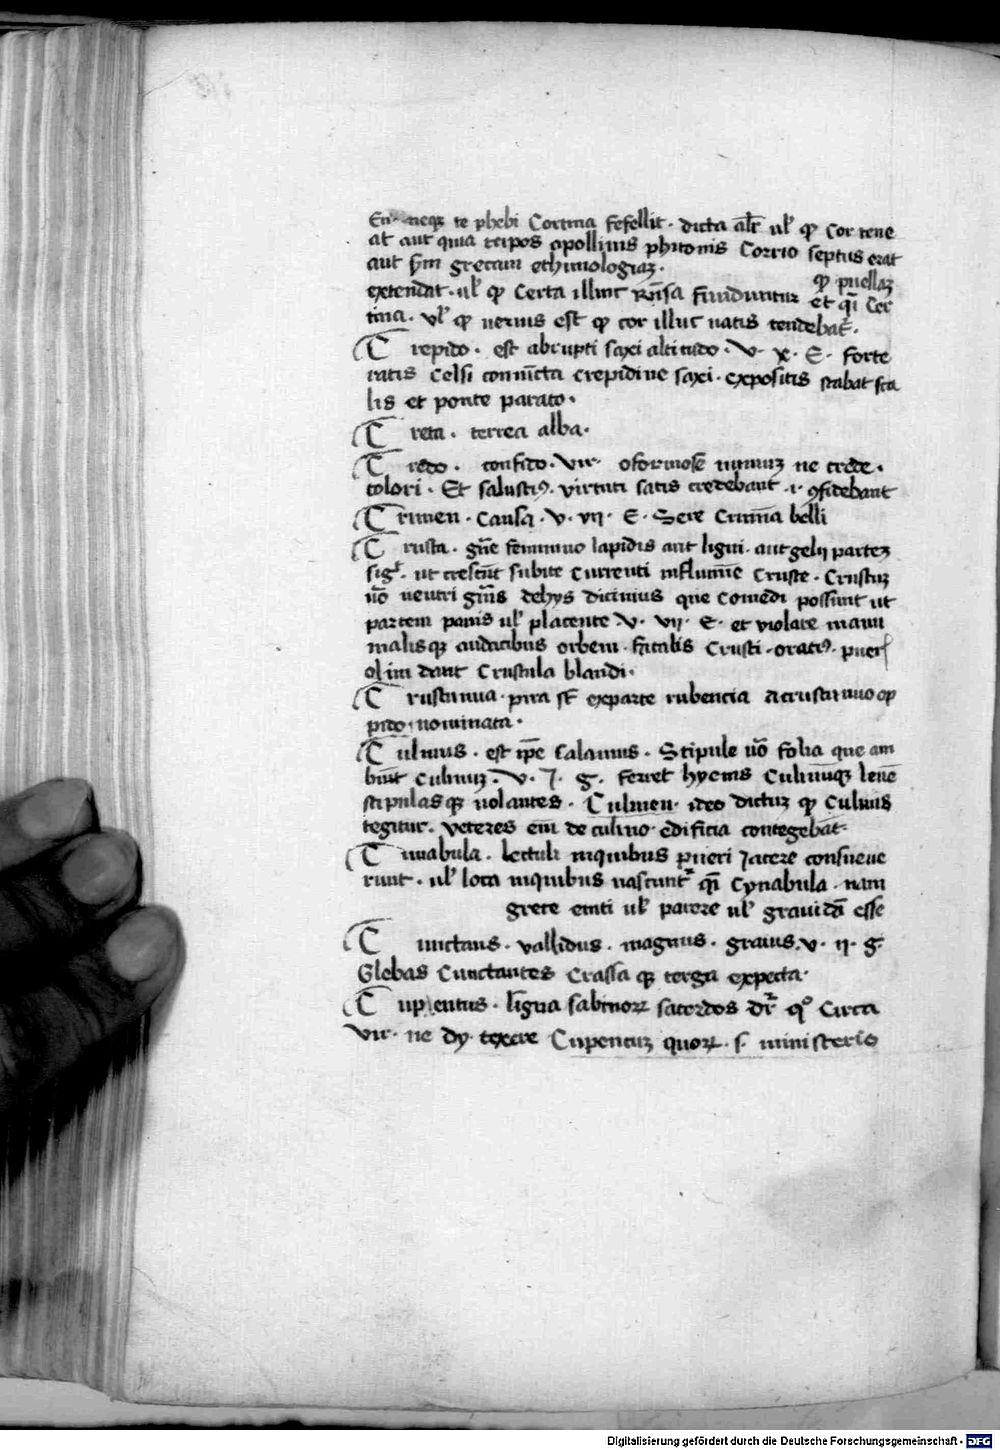 En· neqꝫ te phebi Cortina fefellit· dicta alr̄ ul̄ ꝙ Cor tene
at aut quia tripos apollinis phitonis Corrio septus erat
aut ẜm grecam ethimologiaꝫ·
ꝙ puellaꝫ
extendat· ul̄ ꝙ Certa illinc Rn̄sa funduntur et qͣi Cer
tina· vl̄ ꝙ neruus est ꝙ cor illuc uatis tendebat·
C repido· est abrupti saxi altitudo· v· x· E· forte
ratis Celsi coniuncta crepidine saxi· expositis stabat sca
lis et ponte parato·
C reta· terrea alba·
C redo· confido· vir· oformose nimiuꝫ ne crede·
colori· Et salustiꝰ· virtuti satis credebant ·i· ꝯfidebant
C rimen· Causa· v· vii· E· Sere Crimīa belli
C rusta· gn̄e feminino lapidis aut ligni· aut gelu partes
sigͭ· ut crescūt subite Currenti influmīe Cruste· Crustuꝫ
uō neutri gn̄is dehys dicimus que Comedi possunt ut
partem panis ul̄ placente v· vii· E· et violare manu
malisqꝫ audacibus orbem· fatalis Crusti· oratiꝰ· pueris
olim dant Crustula blandi·
C rustumia· pira sūt exparte rubencia acrustumio op
pido· nominata·
C ulmus· est ip̄e Calamus· Stipule uō folia que am
biūt Culmuꝫ· v· I· g· ferret hyems Culmūqꝫ leuē
stipulasqꝫ uolantes· Culmen· ideo dictuꝫ ꝙ Culmis
tegitur· veteres enī de culmo· edificia contegebāt·
C unabula· lectuli inquibus pueri Iacere consueue
runt· ul̄ loca inquibus nascuntͬ qͣi Cynabula· nam
grece eniti ul̄ parere ul̄ grauidā esse
C unctans· vallidus· magnus· grauis v· ii· g·
Glebas Cunctantes Crassa qꝫ terga expecta·
C upentus· lingua sabinoꝝ sacerdos dr̄ qͦ Circa
vir· ne dy· texere Cupencuꝫ quoꝝ· s· ministerio
Digitalisierung gefördert durch die Deutsche Forschungsgemeinschaft · DFG